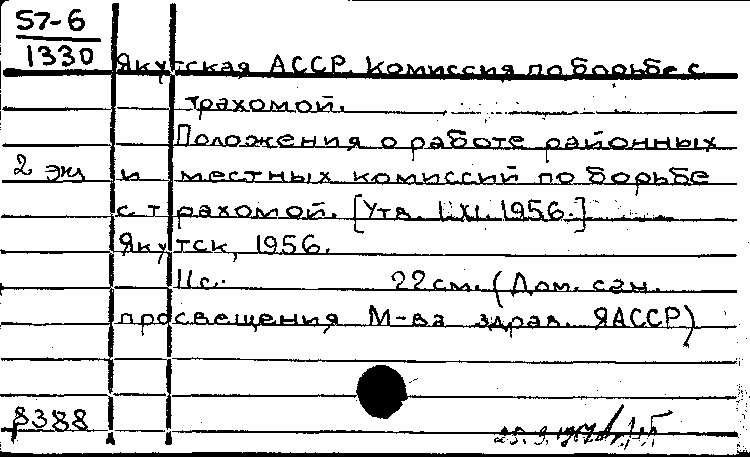 57-6
1330
Якутская АССР. Комиссия по борьбе с
трахомой.
Положения о работе районных
2 экз и местных комиссий по борьбе
с трахомой. [Утв. 1.XI.1956.]
Якутск, 1956.
11с. 22см. (Дом. сан.
просвещения М-ва здрав. ЯАССР)
8388